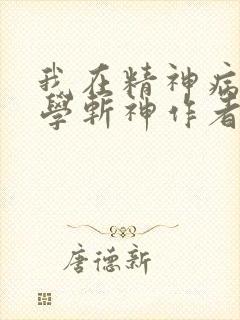 我在精神病
學斬神作者
唐德新